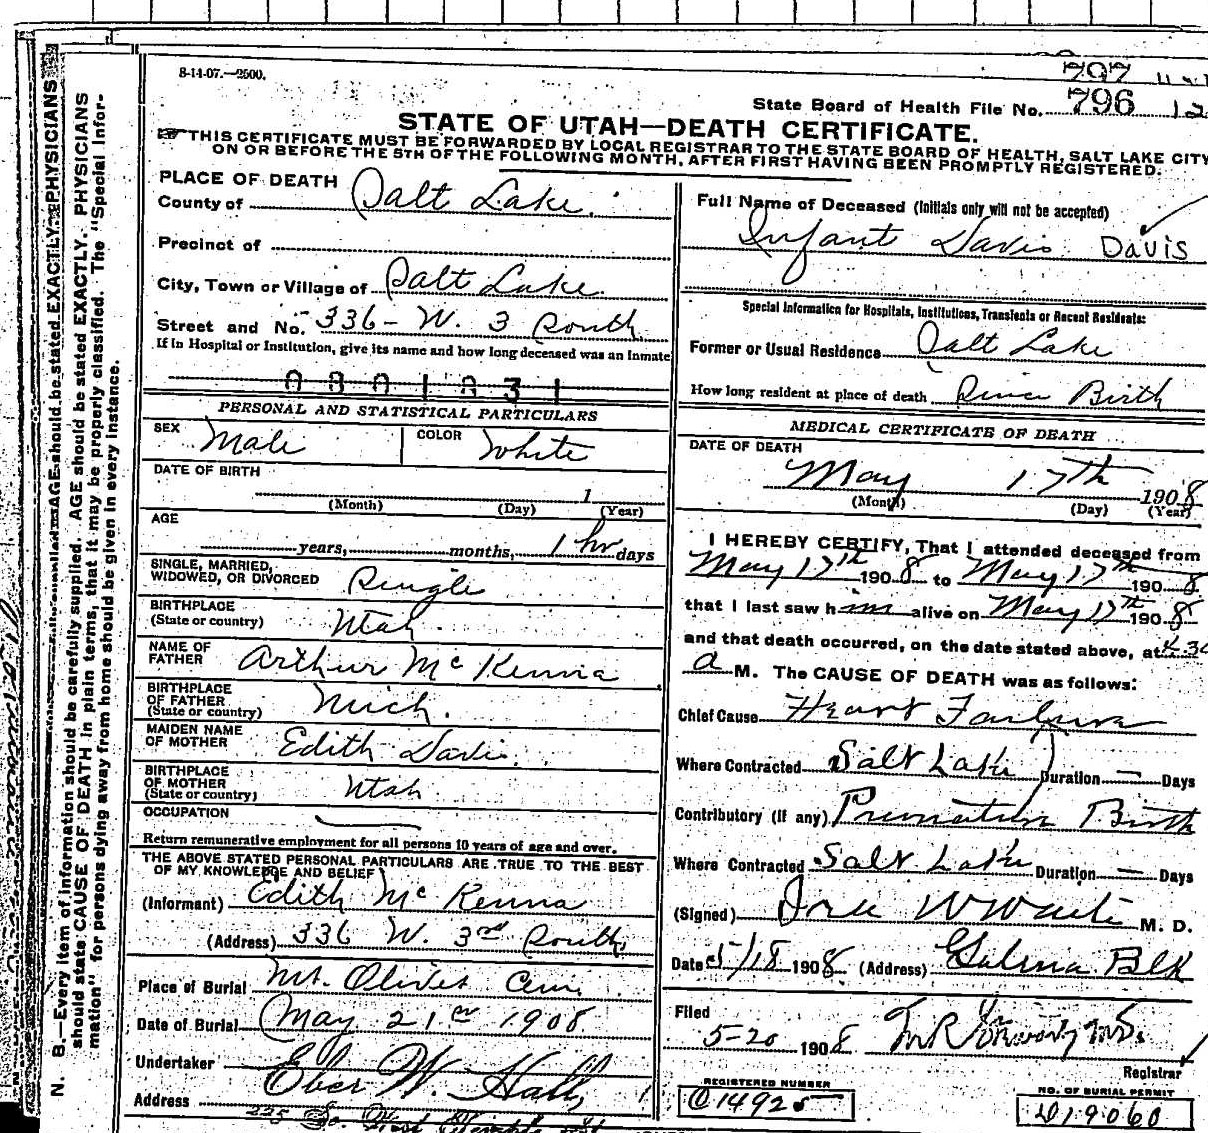 8-14-07.—2500.
797
State Board of Health File No. 796
STATE OF UTAH—DEATH CERTIFICATE.
THIS CERTIFICATE MUST BE FORWARDED BY LOCAL REGISTRAR TO THE STATE BOARD OF HEALTH, SALT LAKE CITY
ON OR BEFORE THE 5TH OF THE FOLLOWING MONTH, AFTER FIRST HAVING BEEN PROMPTLY REGISTERED.
N. B.—Every item of information should be carefully supplied. AGE should be stated EXACTLY. PHYSICIANS
should state CAUSE OF DEATH in plain terms, that it may be properly classified. The "Special Infor-
mation" for persons dying away from home should be given in every instance.
PLACE OF DEATH
County of Salt Lake.
Precinct of
City, Town or Village of Salt Lake.
Street and No. 336 - W. 3 South
If in Hospital or Institution, give its name and how long deceased was an Inmate
PERSONAL AND STATISTICAL PARTICULARS
SEX Male COLOR White
DATE OF BIRTH
1
(Month) (Day) (Year)
AGE
years, months, 1 hr days
SINGLE, MARRIED,
WIDOWED, OR DIVORCED Single
BIRTHPLACE
(State or country) Utah.
NAME OF
FATHER Arthur McKenna
BIRTHPLACE
OF FATHER
(State or country) Mich.
MAIDEN NAME
OF MOTHER Edith Davis.
BIRTHPLACE
OF MOTHER
(State or country) Utah
OCCUPATION
Return remunerative employment for all persons 10 years of age and over.
THE ABOVE STATED PERSONAL PARTICULARS ARE TRUE TO THE BEST
OF MY KNOWLEDGE AND BELIEF
(Informant) Edith McKenna
(Address) 336 W. 3rd South,
Place of Burial Mt. Olivet Cem.
Date of Burial May 21st 1908
Undertaker Eber W. Hall,
Address
Full Name of Deceased (Initials only will not be accepted)
Infant Davis DAVIS
Special Information for Hospitals, Institutions, Transients or Recent Residents:
Former or Usual Residence Salt Lake
How long resident at place of death Since Birth
MEDICAL CERTIFICATE OF DEATH
DATE OF DEATH
May 17th 1908
(Month) (Day) (Year)
I HEREBY CERTIFY, That I attended deceased from
May 17th 1908 to May 17th 1908
that I last saw him alive on May 17th 1908
and that death occurred, on the date stated above, at 4.30
a M. The CAUSE OF DEATH was as follows:
Chief Cause Heart Failure
Where Contracted Salt Lake Duration — Days
Contributory (if any) Premature Birth
Where Contracted Salt Lake Duration — Days
(Signed) M. D.
Date 5/18 1908 (Address) Galena Blk
Filed
5-20 1908
Registrar
REGISTERED NUMBER
014925
NO. OF BURIAL PERMIT
019060